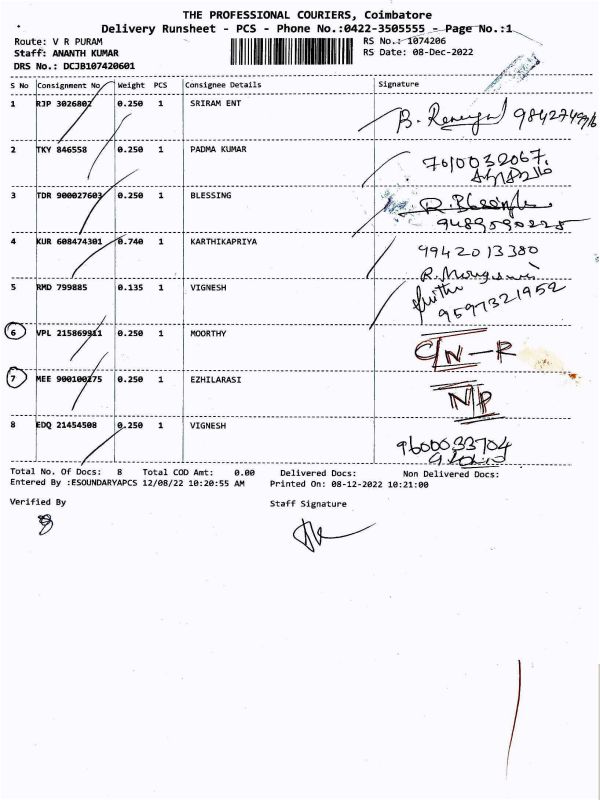 THE PROFESSIONAL COURIERS, Coimbatore
Delivery Runsheet - PCS - Phone No.:0422-3505555 - Page No.:1
Route: V R PURAM
RS No.: 1074206
Staff: ANANTH KUMAR
RS Date: 08-Dec-2022
DRS No.: DCJB107420601
S No Consignment No Weight PCS Consignee Details Signature
1 RJP 3026802 0.250 1 SRIRAM ENT
2 TKY 846558 0.250 1 PADMA KUMAR 7010032067.
3 TDR 900027603 0.250 1 BLESSING
4 KUR 608474301 0.740 1 KARTHIKAPRIYA 9942013380
5 RMD 799885 0.135 1 VIGNESH 9597321952
6 VPL 215869911 0.250 1 MOORTHY C/N-R
7 MEE 900100275 0.250 1 EZHILARASI N/P
8 EDQ 21454508 0.250 1 VIGNESH 9600033704
Total No. Of Docs: 8 Total COD Amt: 0.00 Delivered Docs: Non Delivered Docs:
Entered By :ESOUNDARYAPCS 12/08/22 10:20:55 AM Printed On: 08-12-2022 10:21:00
Verified By Staff Signature